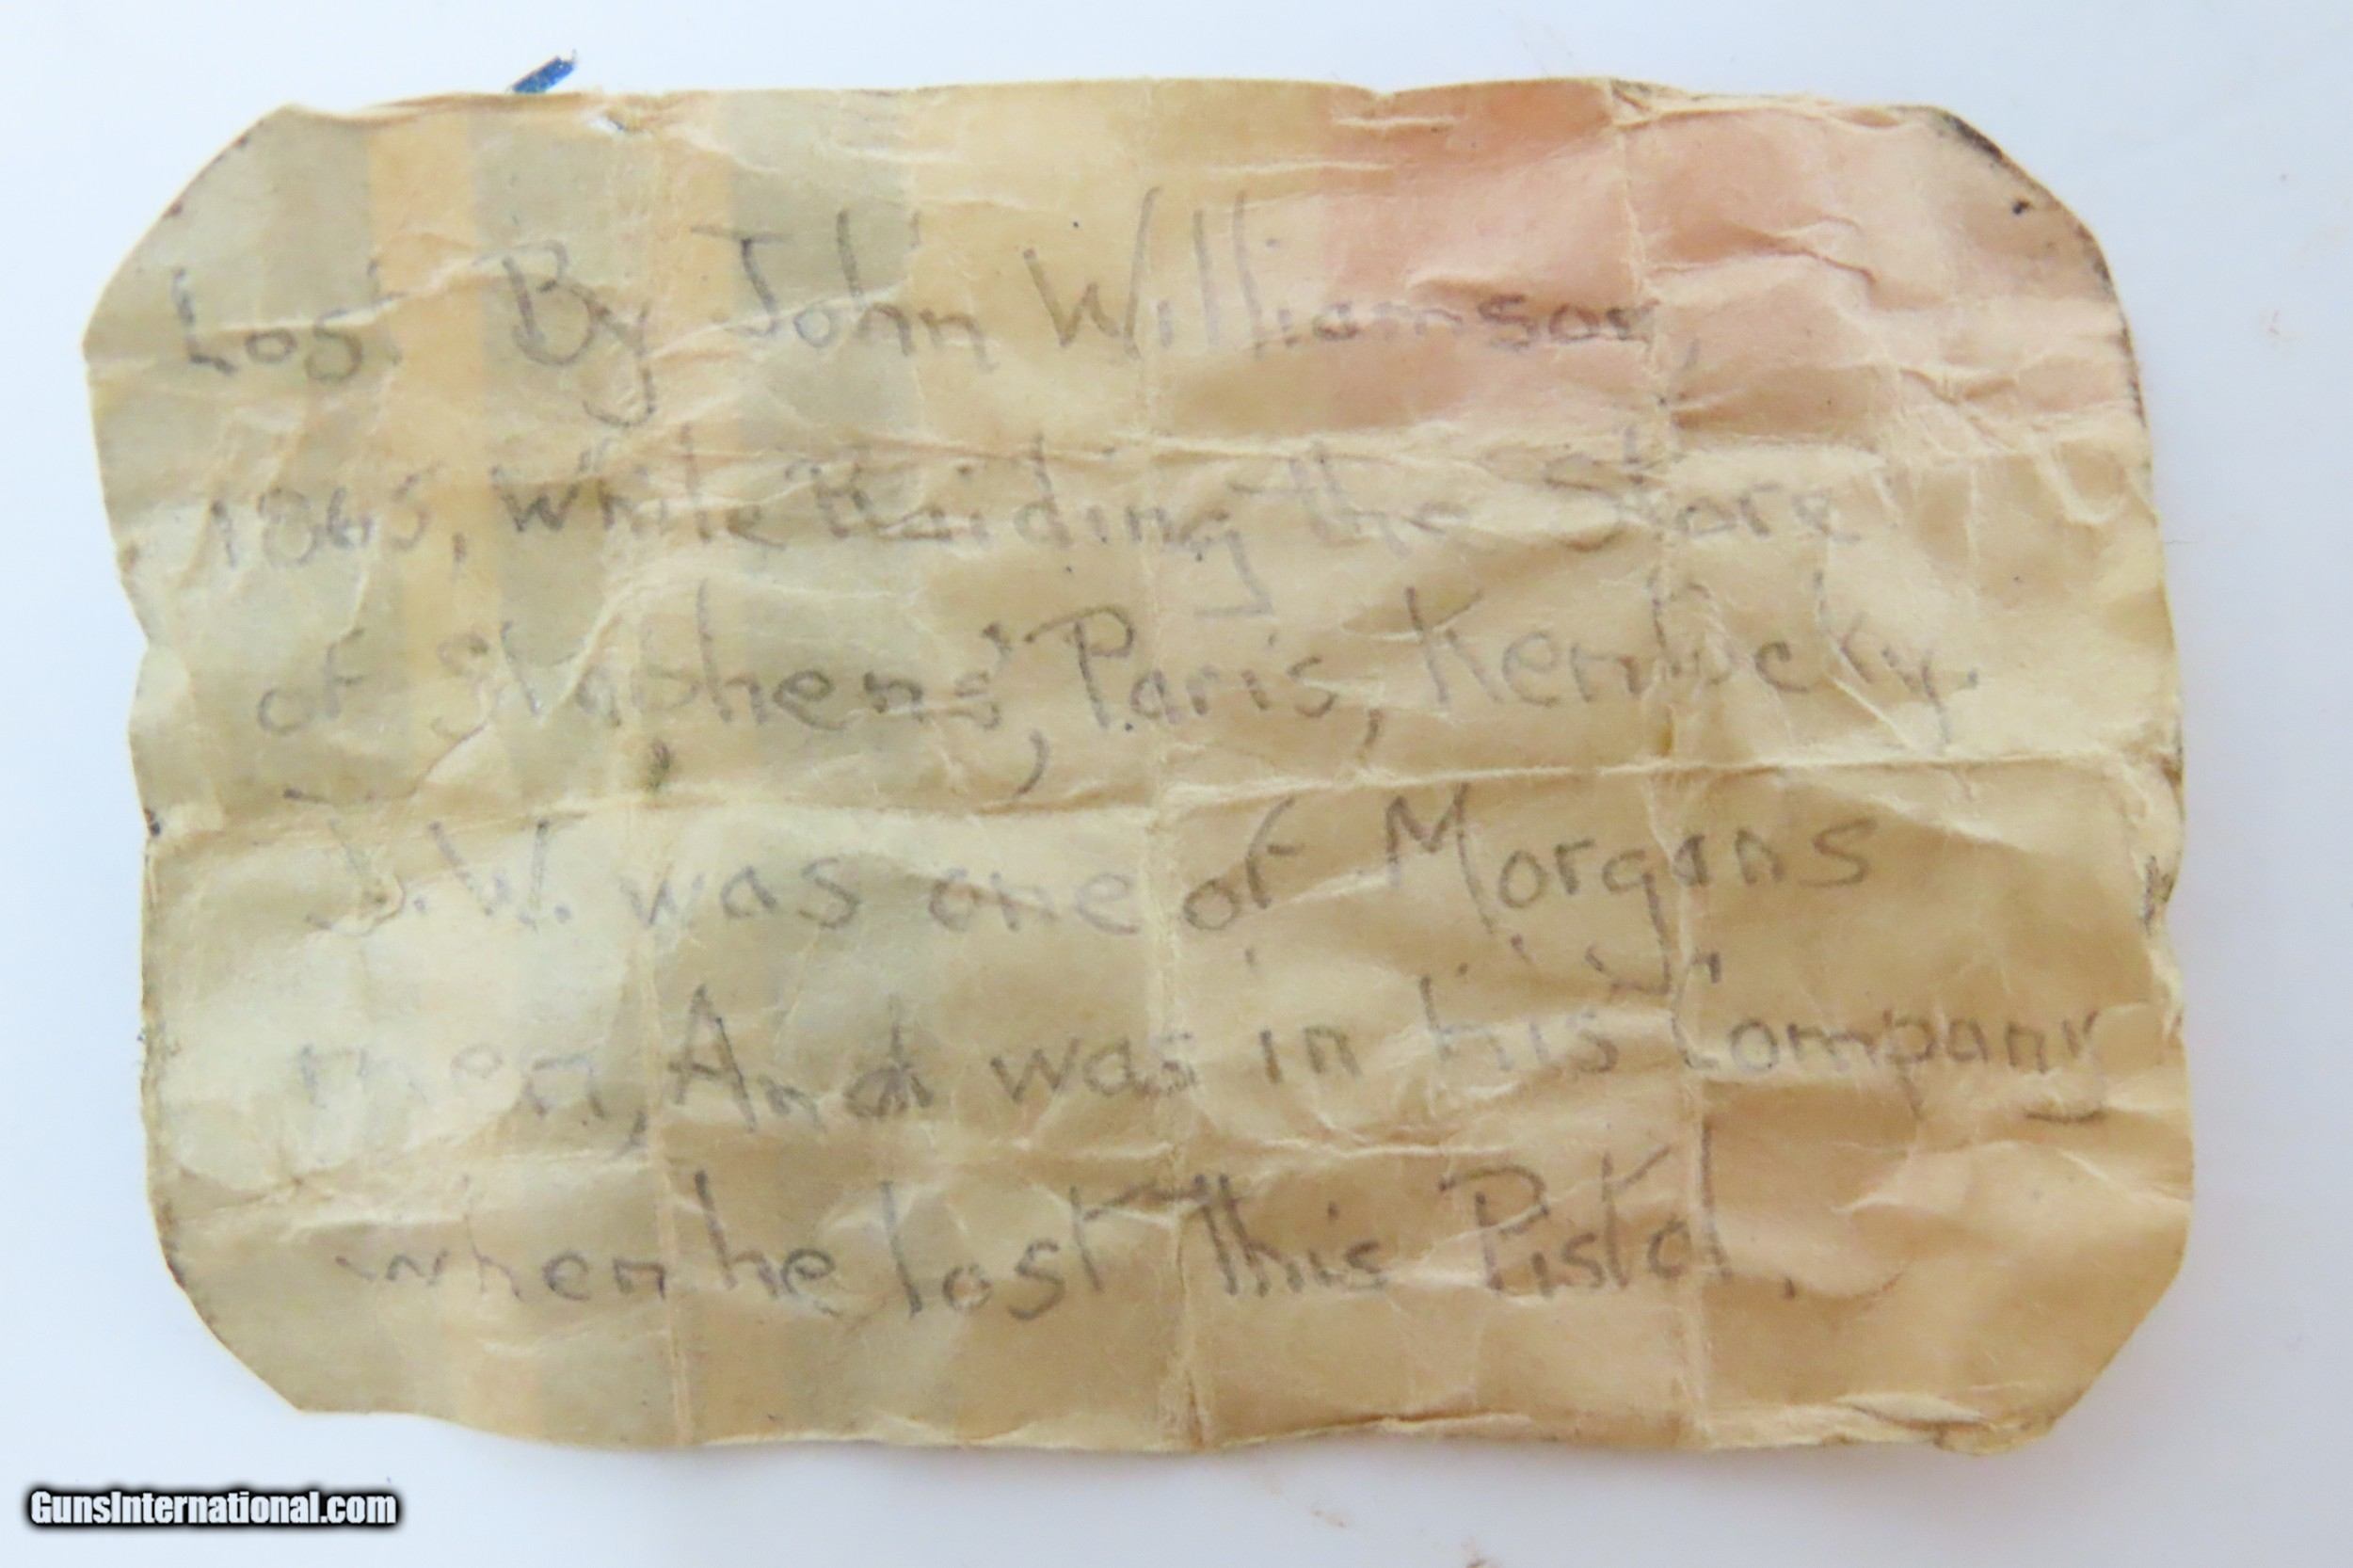 Lost By John Williamson,
1865, while Raiding the store
of Stephens', Paris, Kentucky.
J.W. was one of Morgans
men, And was in his Company
when he lost this Pistol.
GunsInternational.com